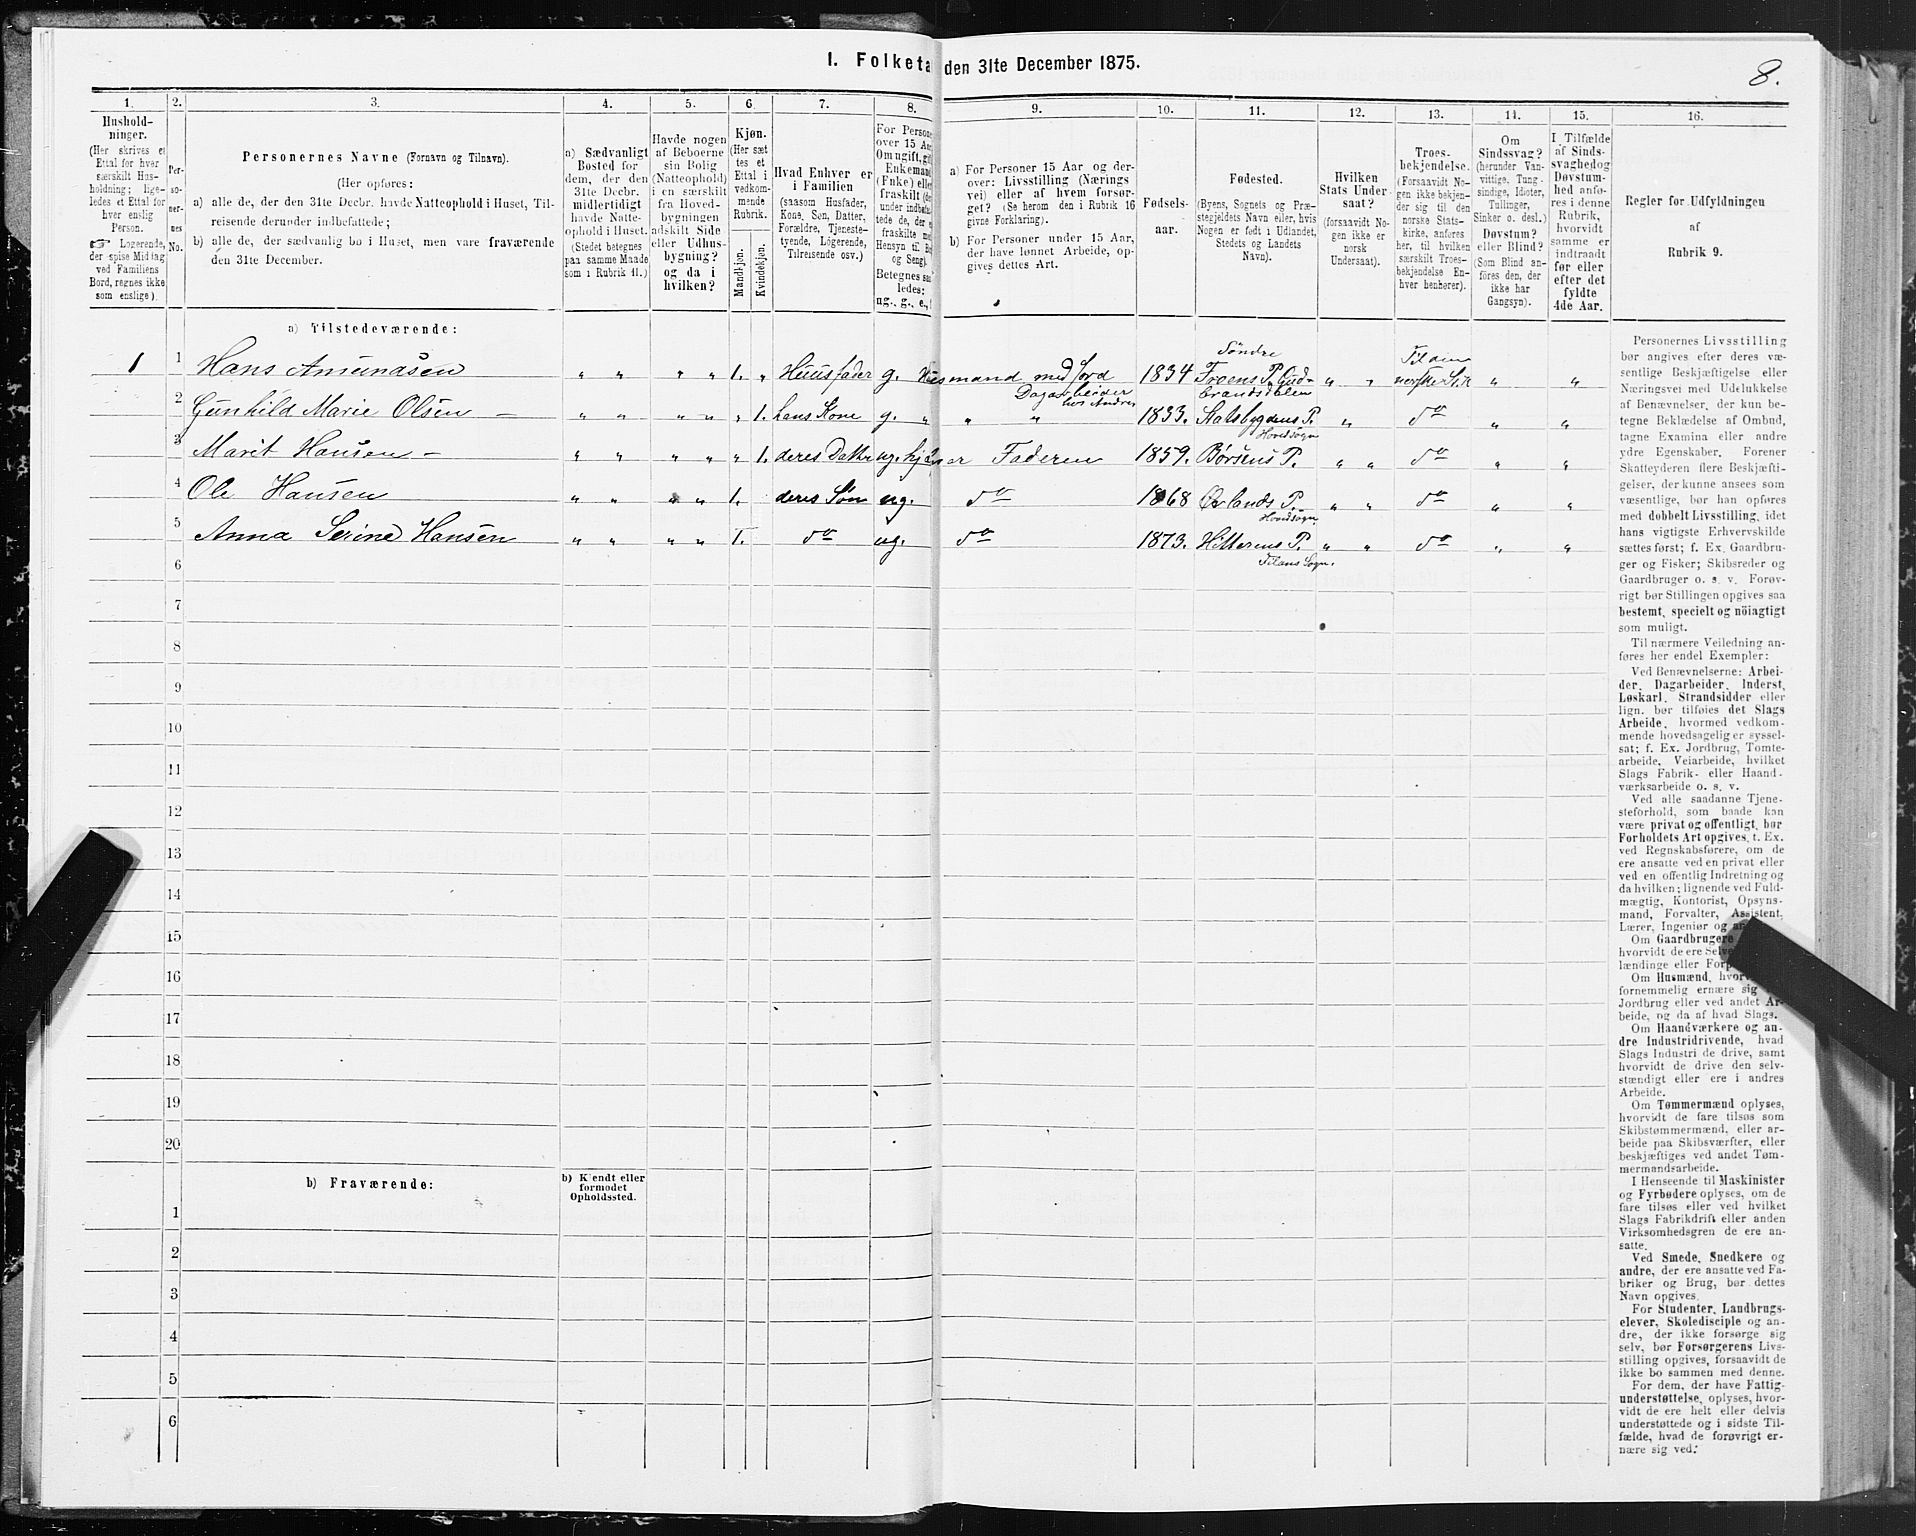 I. Folketa den 31te December 1875.
8.
1. 2. 3. 4. 5. 6. 7. 8. 9. 10. 11. 12. 13. 14. 15. 16.
Hushold-
ninger.
(Her skrives et
Ettal for hver
særskilt Hus-
holdning; lige-
ledes et Ettal for
hver enslig
Person.
☞ Logerende,
der spise Middag
ved Familiens
Bord, regnes ikke
som enslige).
Per-
so-
ner-
nes
No.
Personernes Navne (Fornavn og Tilnavn).
(Her opføres:
a) alle de, der den 31te Decbr. havde Natteophold i Huset, Til-
reisende derunder indbefattede;
b) alle de, der sædvanlig bo i Huset, men vare fraværende
den 31te December.
a) Sædvanligt
Bosted for
dem, der den
31te Decbr.
midlertidigt
havde Natte-
ophold i Huset.
(Stedet betegnes
paa samme Maade
som i Rubrik 11.)
Havde nogen
af Beboerne
sin Bolig
(Natteophold)
i en særskilt
fra Hoved-
bygningen
adskilt Side
eller Udhus-
bygning?
og da i
hvilken?
Kjøn.
(Her sæt
tes et
Ettal i
vedkom-
mende
Rubrik.
Mandkjøn.
Kvindekjøn.
Hvad Enhver er
i Familien
(saasom Husfader,
Kone, Søn, Datter,
Forældre, Tjeneste-
tyende, Logerende,
Tilreisende osv.)
For Persone
over 15 Aa
Om ugift, gift
Enkemand
(Enke) elle
fraskilt (de
under indbefat
tede de, der
fraskilte me
Hensyn til Bo
og Seng).
Betegnes saa
ledes:
ug., g., e.,
a) For Personer 15 Aar og der-
over: Livsstilling (Nærings
vei) eller af hvem forsør-
get? (Se herom den i Rubrik 16
givne Forklaring).
b) For Personer under 15 Aar,
der have lønnet Arbeide, op-
gives dettes Art.
Fødsels-
aar.
Fødested.
(Byens, Sognets og Præ-
stegjeldets Navn eller, hvis
Nogen er født i Udlandet,
Stedets og Landets
Navn).
Hvilken
Stats Under
saat?
(forsaavidt No-
gen ikke er
norsk
Undersaat).
Troes-
bekjendelse.
(Forsaavidt No-
gen ikke bekjen-
der sig til den
norske Stats-
kirke, anføres
her, til hvilken
særskilt Troes-
bekjendelse En-
hver henhører).
Om
Sindssvag?
(herunder Van-
vittige, Tung-
sindige, Idioter,
Tullinger,
Sinker o. desl.)
Døvstum?
eller Blind?
(Som Blind an-
føres den, der
ikke har
Gangsyn).
I Tilfælde
af Sinds-
svaghed og
Døvstum-
hed anfø-
res i denne
Rubrik,
hvorvidt
samme er
indtraadt
før eller
efter det
fyldte
4de Aar.
Regler for Udfyldningen
af
Rubrik 9.
a) Tilstedeværende:
1 1 Hans Amundsen „ „ „ „ 1. „ Huusfader g. Huusmand med Jord Dagarbeider hos Andre 1834 Søndre Froens P. Gud-brandsdalen „ „ Til den norske Stk „ „
2 Gunhild Marie Olsen – „ „ „ „ „ 1. hans Kone g. „ „ „ 1833. Statsbygdens P. Hovedsogn „ do „ „
3 Marit Hansen – „ „ „ „ „ 1. deres Dattr ug. hjælper Faderen 1859. Børsens P. „ „ do „ „
4 Ole Hansen „ „ „ „ 1. deres Søn ug. do 1868 Ørlands P. Hovedsogn „ „ do „ „
5 Anna Serine Hansen „ „ „ „ 1. do ug. do 1873. Hitterens P. Filans Sogn. „ „ do „ „
6
7
8
9
10
11
12
13
14
15
16
17
18
19
20
b) Fraværende:
b) Kjendt eller
formodet
Opholdssted.
1
2
3
4
5
6
Personernes Livsstilling
bør angives efter deres væ-
sentlige Beskjæftigelse eller
Næringsvei med Udelukkelse
af Benævnelser, der kun be-
tegne Beklædelse af Ombud,
tagne Examina eller andre
ydre Egenskaber. Forener
Skatteyderen flere Beskjæfti-
gelser, der kunne ansees som
væsentlige, bør han opføres
med dobbelt Livsstilling, idet
hans vigtigste Erhvervskilde
sættes først; f. Ex. Gaardbru-
ger og Fisker; Skibsreder og
Gaardbruger o. s. v. Forøv-
rigt bør Stillingen opgives saa
bestemt, specielt og nöiagtigt
som muligt.
Til nærmere Veiledning an-
føres her endel Exempler:
Ved Benævnelserne: Arbei-
der, Dagarbeider, Inderst,
Løskarl, Strandsidder eller
lign. bør tilføies det Slags
Arbeide, hvormed vedkom-
mende hovedsagelig er syssel-
sat; f. Ex. Jordbrug, Tomte-
arbeide, Veiarbeide, hvilket
Slags Fabrik- eller Haand-
værksarbeide o. s. v.
Ved alle saadanne Tjene-
steforhold, som baade kan
være privat og offentligt, bør
Forholdets Art opgives, t. Ex.
ved Regnskabsførere, om de
ere ansatte ved en privat eller
ved en offentlig Indretning og
da hvilken; lignende ved Fuld-
mægtig, Kontorist, Opsyns-
mand, Forvalter, Assistent,
Lærer, Ingeniør og
Om Gaardbrugere
hvorvidt de ere Selve
lændinge eller Forp
Om Husmænd, hvor
fornemmelig ernære sig
Jordbrug eller ved andet Ar-
beide, og da af hvad Slags.
Om Haandværkere og an-
dre Industridrivende, hvad
Slags Industri de drive, samt
hvorvidt de drive den selv-
stændigt eller ere i andres
Arbeide.
Om Tømmermænd oplyses,
hvorvidt de fare tilsøs som
Skibstømmermænd, eller ar-
beide paa Skibsværfter, eller
beskjæftiges ved andet Tøm-
mermandsarbeide.
I Henseende til Maskinister
og Fyrbødere oplyses, om de
fare tilsøs eller ved hvilket
Slags Fabrikdrift eller anden
Virksomhedsgren de ere an-
satte.
Ved Smede, Snedkere og
andre, der ere ansatte ved Fa-
briker og Brug, bør dettes
Navn opgives.
For Studenter, Landbrugs-
elever, Skoledisciple og an-
dre, der ikke forsørge sig
selv, bør Forsørgerens Livs-
stilling opgives, forsaavidt de
ikke bo sammen med denne.
For dem, der have Fattig-
understøttelse, oplyses, hvor-
vidt de ere helt eller delvis
understøttede og i sidste Til-
fælde, hvad de forøvrigt er-
nære sig ved.